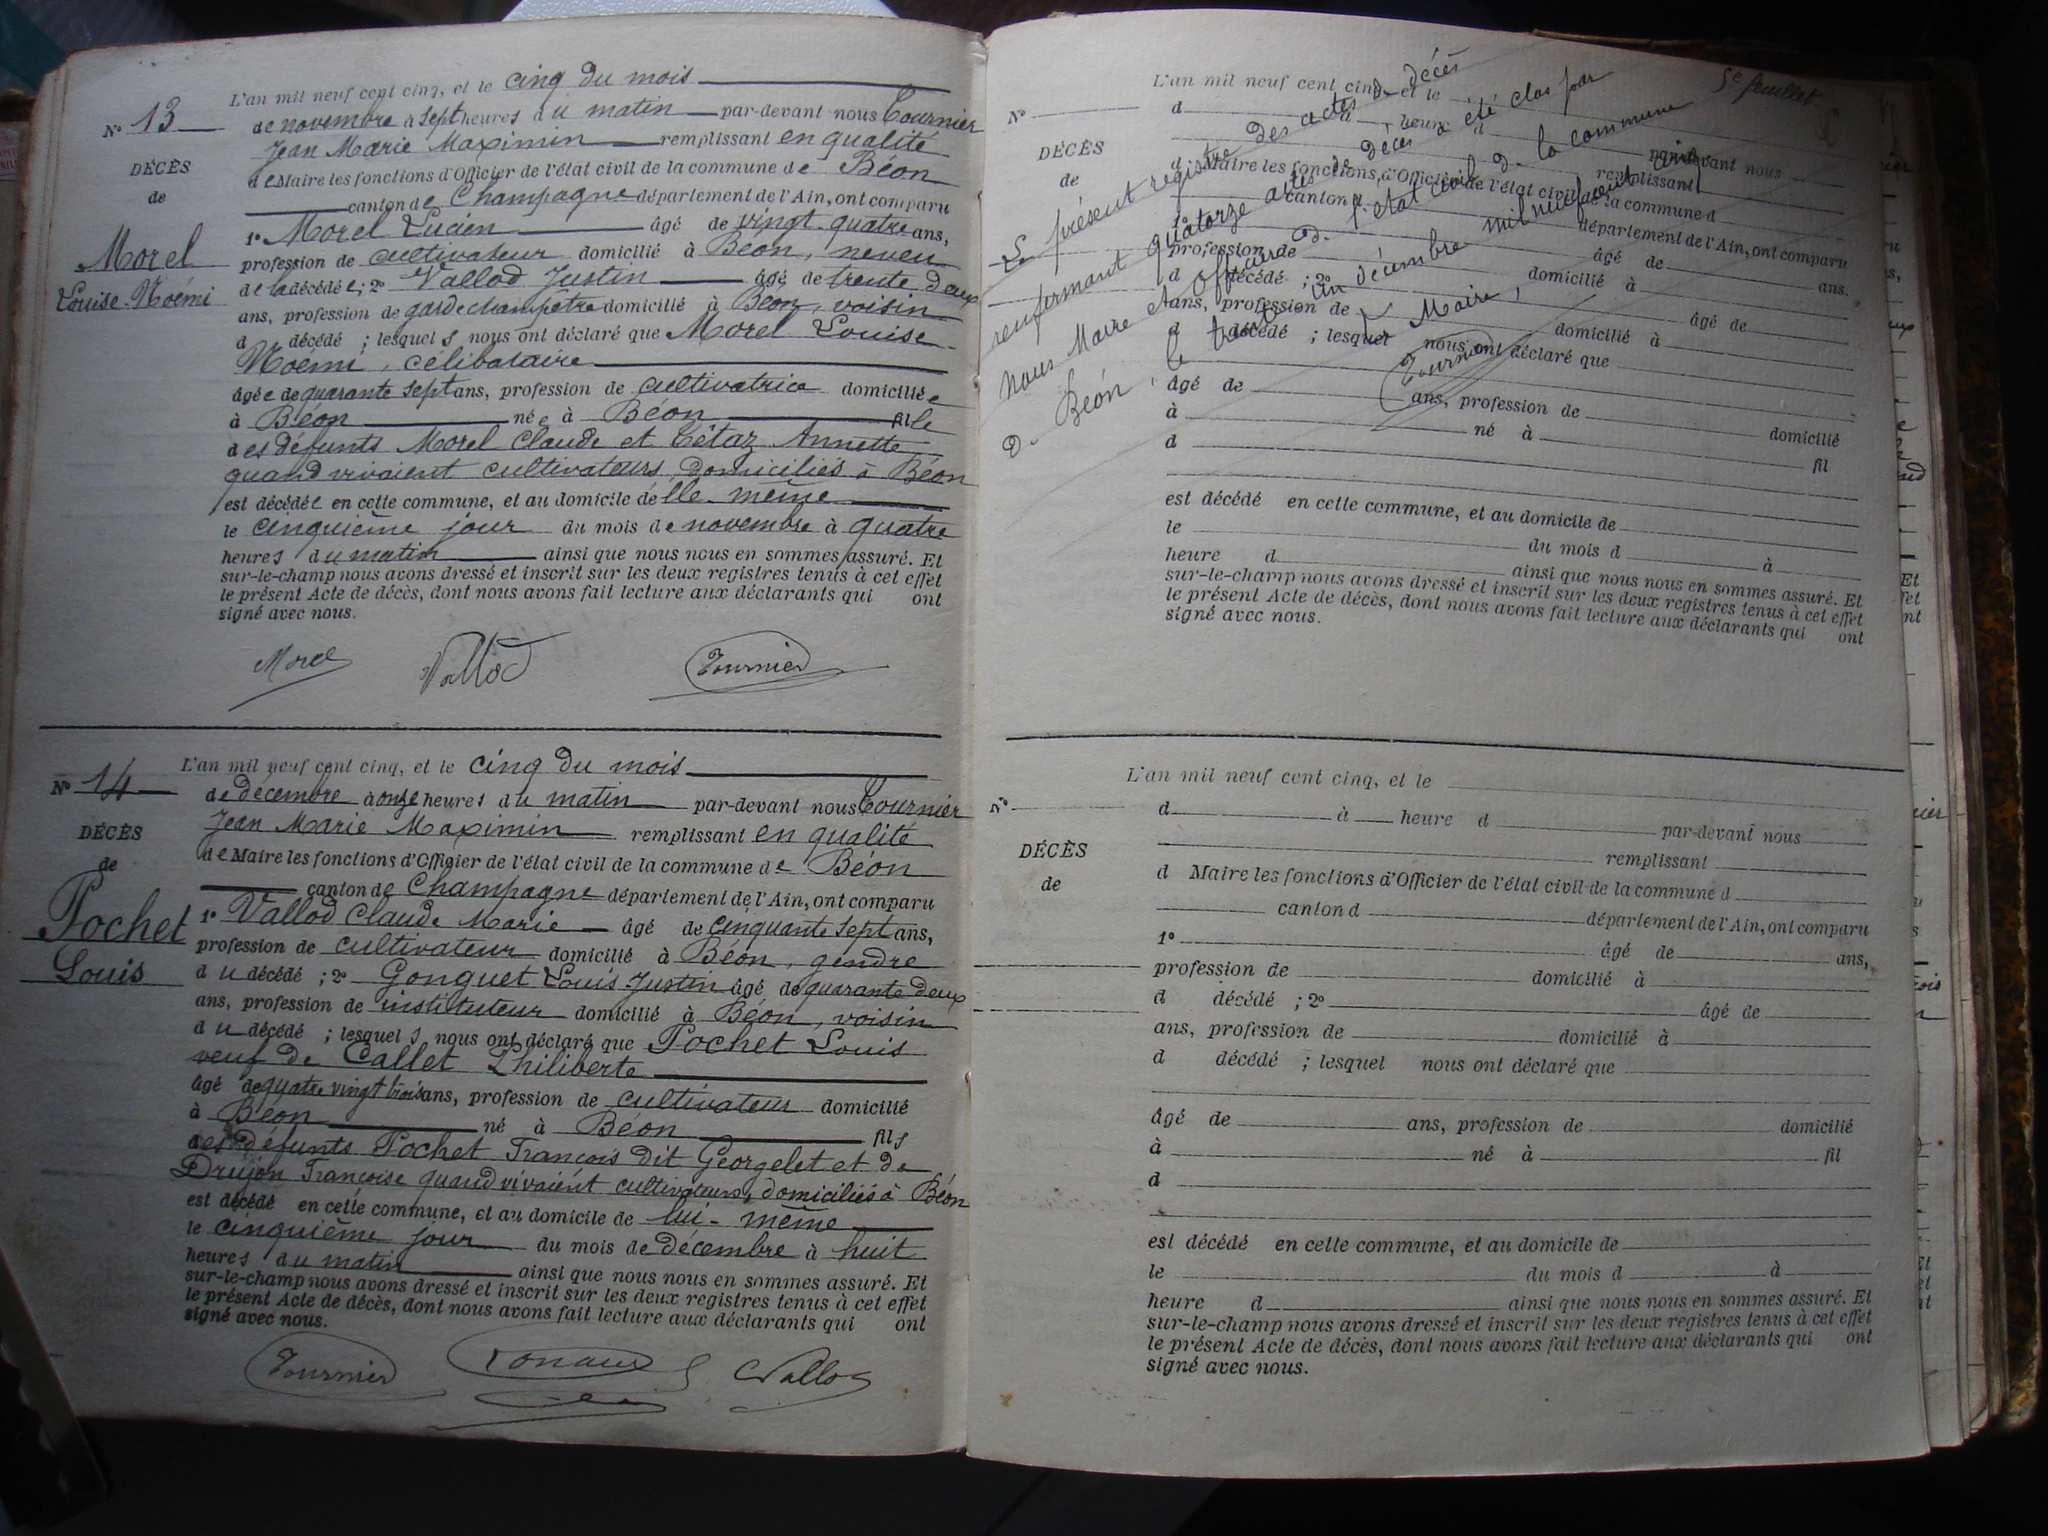 N° 13
DÉCÈS
de
Morel
Louise Noémi
L'an mil neuf cent cinq, et le cinq du mois
de novembre à sept heures du matin par-devant nous Tournier
Jean Marie Maximin remplissant en qualité
de Maire les fonctions d'Officier de l'état civil de la commune de Béon
canton de Champagne département de l'Ain, ont comparu
1° Morel Lucien âgé de vingt-quatre ans,
profession de cultivateur domicilié à Béon, neveu
de la décédée ; 2° Vallod Justin âgé de trente deux
ans, profession de garde champêtre domicilié à Béon, voisin
d décédé ; lesquels nous ont déclaré que Morel Louise
Noémi, célibataire
âgée de quarante sept ans, profession de cultivatrice domiciliée
à Béon née à Béon fille
des défunts Morel Claude et Tétaz Annette
quand vivaient cultivateurs, domiciliés à Béon
est décédée en cette commune, et au domicile d'elle-même
le cinquième jour du mois de novembre à quatre
heures du matin ainsi que nous nous en sommes assuré. Et
sur-le-champ nous avons dressé et inscrit sur les deux registres tenus à cet effet
le présent Acte de décès, dont nous avons fait lecture aux déclarants qui ont
signé avec nous.
Morel Vallod Tournier
N° 14
DÉCÈS
de
Pochet
Louis
L'an mil neuf cent cinq, et le cinq du mois
de décembre à onze heures du matin par-devant nous Tournier
Jean Marie Maximin remplissant en qualité
de Maire les fonctions d'Officier de l'état civil de la commune de Béon
canton de Champagne département de l'Ain, ont comparu
1° Vallod Claude Marie âgé de cinquante sept ans,
profession de cultivateur domicilié à Béon, gendre
du décédé ; 2° Gonguet Louis Justin âgé de quarante deux
ans, profession de instituteur domicilié à Béon, voisin
du décédé ; lesquels nous ont déclaré que Pochet Louis
veuf de Callet Philiberte
âgé de quatre vingt trois ans, profession de cultivateur domicilié
à Béon né à Béon fils
des défunts Pochet François dit Georgelet et de
Drujon Françoise quand vivaient cultivateurs, domiciliés à Béon
est décédé en cette commune, et au domicile de lui-même
le cinquième jour du mois de décembre à huit
heures du matin ainsi que nous nous en sommes assuré. Et
sur-le-champ nous avons dressé et inscrit sur les deux registres tenus à cet effet
le présent Acte de décès, dont nous avons fait lecture aux déclarants qui ont
signé avec nous.
Tournier Vallod
5e feuillet
N°
DÉCÈS
de
L'an mil neuf cent cinq, et le
d à heure d par-devant nous
remplissant
d Maire les fonctions d'Officier de l'état civil de la commune d
canton d département de l'Ain, ont comparu
1° âgé de ans,
profession de domicilié à
d décédé ; 2° âgé de
ans, profession de domicilié à
d décédé ; lesquel nous ont déclaré que
âgé de ans, profession de domicilié
à né à fil
d
est décédé en cette commune, et au domicile de
le du mois d à
heure d ainsi que nous nous en sommes assuré. Et
sur-le-champ nous avons dressé et inscrit sur les deux registres tenus à cet effet
le présent Acte de décès, dont nous avons fait lecture aux déclarants qui ont
signé avec nous.
Le présent registre des actes de décès
renfermant quatorze actes de décès a été clos par
nous Maire et Officier de l'état civil de la commune
de Béon, le trente un décembre mil neuf cent cinq
Le Maire,
Tournier
N°
DÉCÈS
de
L'an mil neuf cent cinq, et le
d à heure d par-devant nous
remplissant
d Maire les fonctions d'Officier de l'état civil de la commune d
canton d département de l'Ain, ont comparu
1° âgé de ans,
profession de domicilié à
d décédé ; 2° âgé de
ans, profession de domicilié à
d décédé ; lesquel nous ont déclaré que
âgé de ans, profession de domicilié
à né à fil
d
est décédé en cette commune, et au domicile de
le du mois d à
heure d ainsi que nous nous en sommes assuré. Et
sur-le-champ nous avons dressé et inscrit sur les deux registres tenus à cet effet
le présent Acte de décès, dont nous avons fait lecture aux déclarants qui ont
signé avec nous.